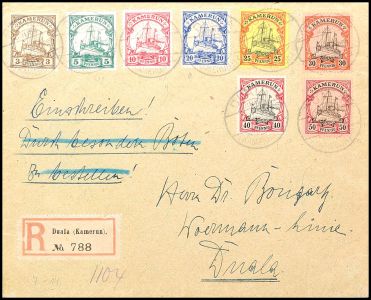 KAMERUN KAMERUN KAMERUN KAMERUN KAMERUN KAMERUN
3 PFENNIG 3
5 PFENNIG 5
10 PFENNIG 10
20 PFENNIG 20
25 PFENNIG 25
30 PFENNIG 30
KAMERUN KAMERUN
40 PFENNIG 40
50 PFENNIG 50
Einschreiben!
Durch besonderen Boten
zu bestellen!
Herrn Dr. Bongarz
Woermann-Linie.
Duala.
R
Duala (Kamerun).
№ 788
1104